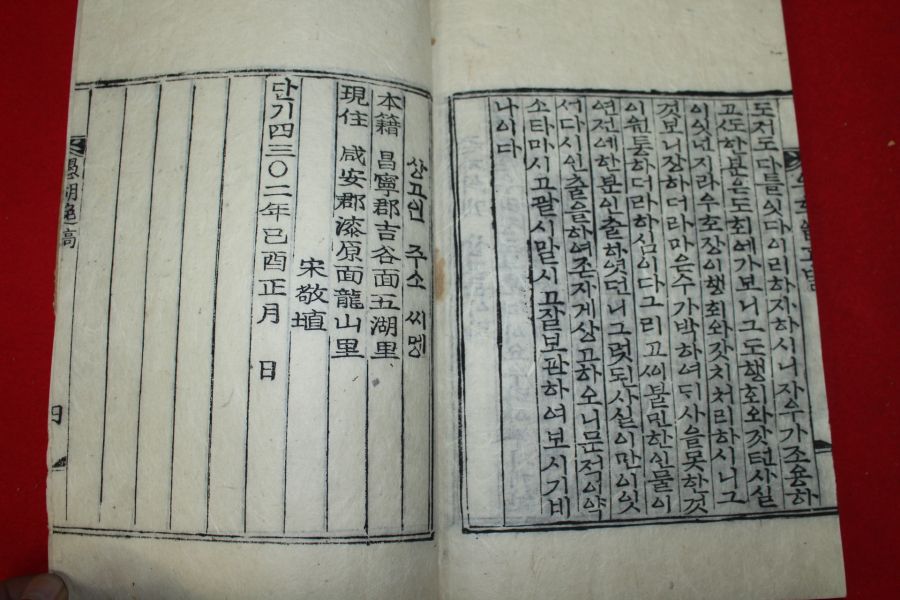 도저도다들잇다이리하지하시니장우가조용하
고도한분은도회에가보니그도행회와갓턴사실
이잇던지라수호장이행회와갓치처리하시니그
것보니장하더라마은수가박하여디사을못한것
이원통하더라하심이다그리고씨불만한인물이
연전에한분인출하엿던니그럿된사실이만이잇
서다시인출을하여존지게상고하오니문적이약
소타마시고괄시말시고잘보판하여보시기비
나이다
상고인 주소 씨멩
本籍 昌寧郡吉谷面五湖里
現住 咸安郡漆原面龍山里
宋敬埴
단기四三〇二年己酉正月 日
愚湖
稿